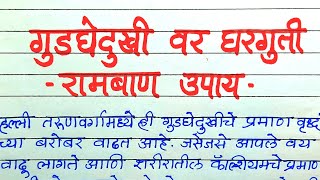 गुडघेदुखी वर घरगुती
- रामबाण उपाय -
हल्ली तरुणवर्गामध्ये ही गुडघेदुखीचे प्रमाण वृध्दां
च्या बरोबर वाढत आहे. जसेजसे आपले वय
वाढू लागते आणि शरीरातील कॅल्शियमचे प्रमाण